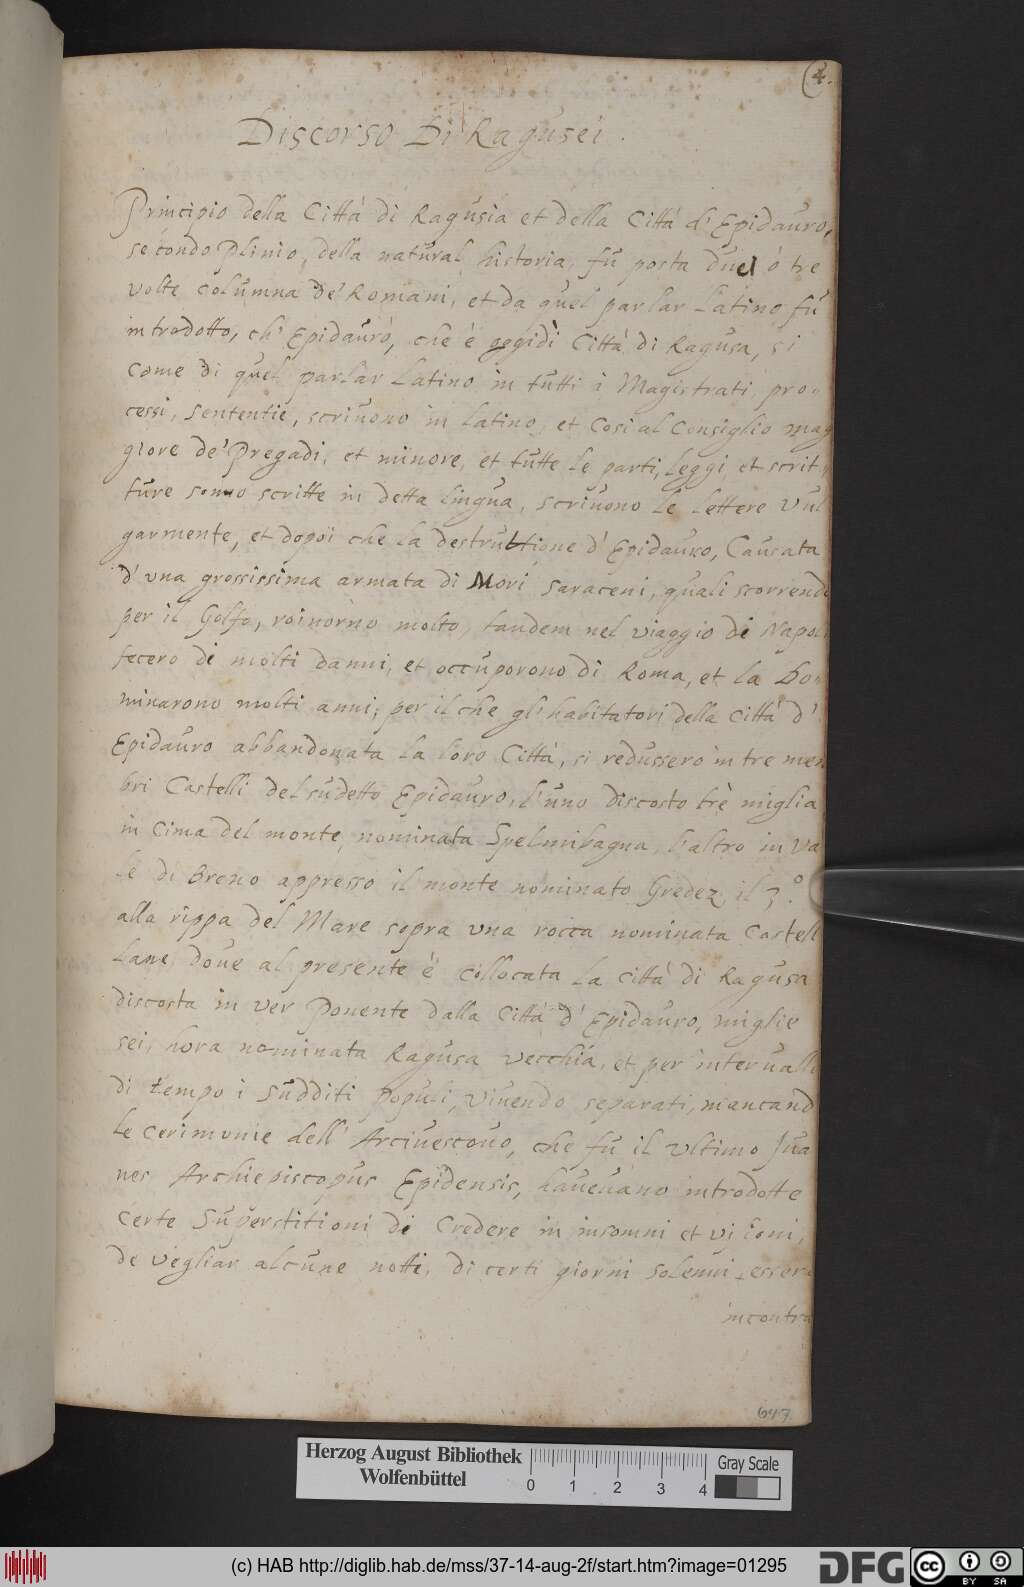 (4.
Discorso Di Ragusei.
Principio della Città di Ragusia et della Città d' Epidauro,
secondo Plinio, della natural historia, fu posta due ò tre
volte columna de' Romani, et da quel parlar Latino fu
introdotto, ch' Epidauro, che è Città di Ragusa, si
come di quel parlar Latino in tutti i Magistrati, pro-
cessi, sententie, scriuono in latino, et cosi al Consiglio mag
giore de' Pregadi, et minore, et tutte le parti, leggi, et scrit-
ture sonno scritte in detta lingua, scriuono le lettere vul
garmente, et dopoi che la destruttione d' Epidauro, Causata
d' una grossissima armata di Mori Saraceni, quali scorrendo
per il Golfo, roinorno molto, tandem nel viaggio de Napoli
fecero di molti danni, et occuporono di Roma, et la Do-
minarono molti anni, per il che gl' habitatori della Città d'
Epidauro abbandonata la loro Città, si redussero in tre mem
bri Castelli del sudetto Epidauro, l' uno discosto trè miglia
in cima del monte, nominata Spelmibagna, l' altro in Va
le di Breno appresso il monte nominato Gradez, il 3.°
alla rippa del Mare sopra una rocca nominata Castell
Lane, doue al presente è collocata la città di Ragusa
discosta in ver Ponente dalla Città d' Epidauro, miglie
sei, hora nominata Ragusa vecchia, et per interualli
di tempo i sudditi Populi, viuendo separati, mancand
le cerimonie dell' Arciuescouo, che fu il ultimo Jua
nes Archiepiscopus Epidensis, haueuano introdotte
certe superstitioni di Credere in insomni et visioni,
de vegliar alcune notti, di certi giorni solenni, essere
incontra
647.
Herzog August Bibliothek
Wolfenbüttel
0 1 2 3 4
Gray Scale
(c) HAB http://diglib.hab.de/mss/37-14-aug-2f/start.htm?image=01295
DFG
cc BY SA